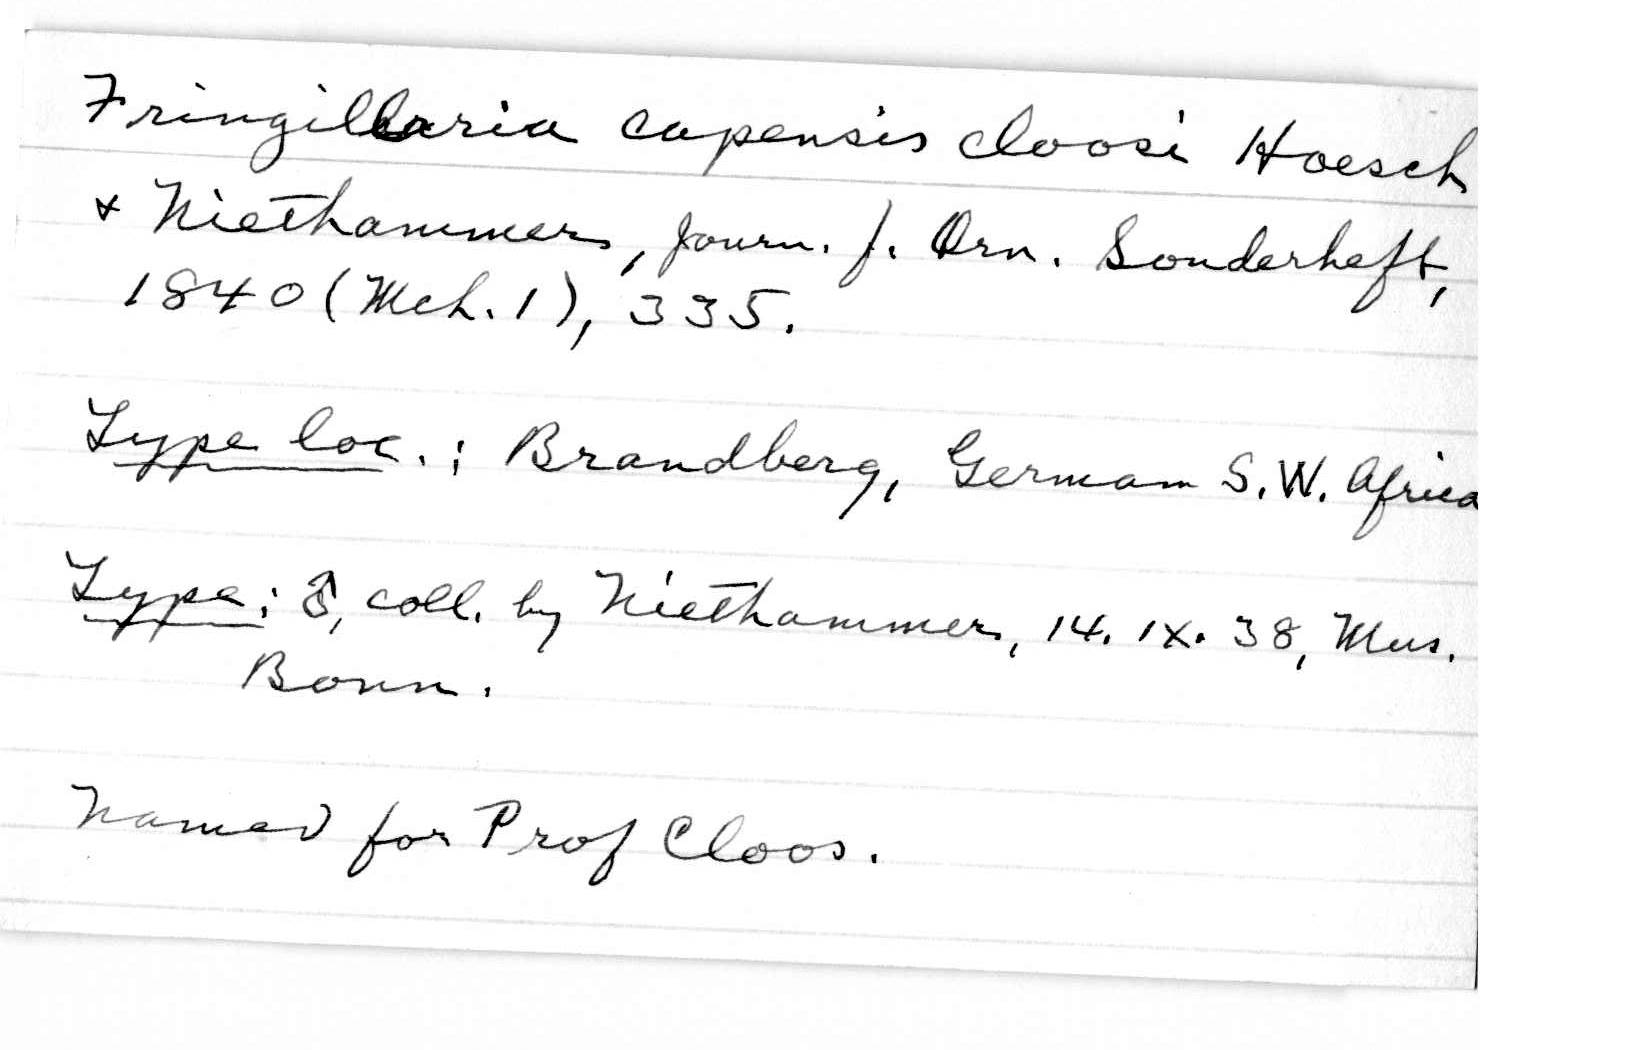 Fringillaria capensis cloosi Hoesch
& Niethammer, Journ. f. Orn. Sonderheft,
1840 (Mch. 1), 335.
Type loc.: Brandberg, German S.W. Africa
Type: ♂, coll. by Niethammer, 14. IX. 38, Mus.
Bonn.
Named for Prof Cloos.